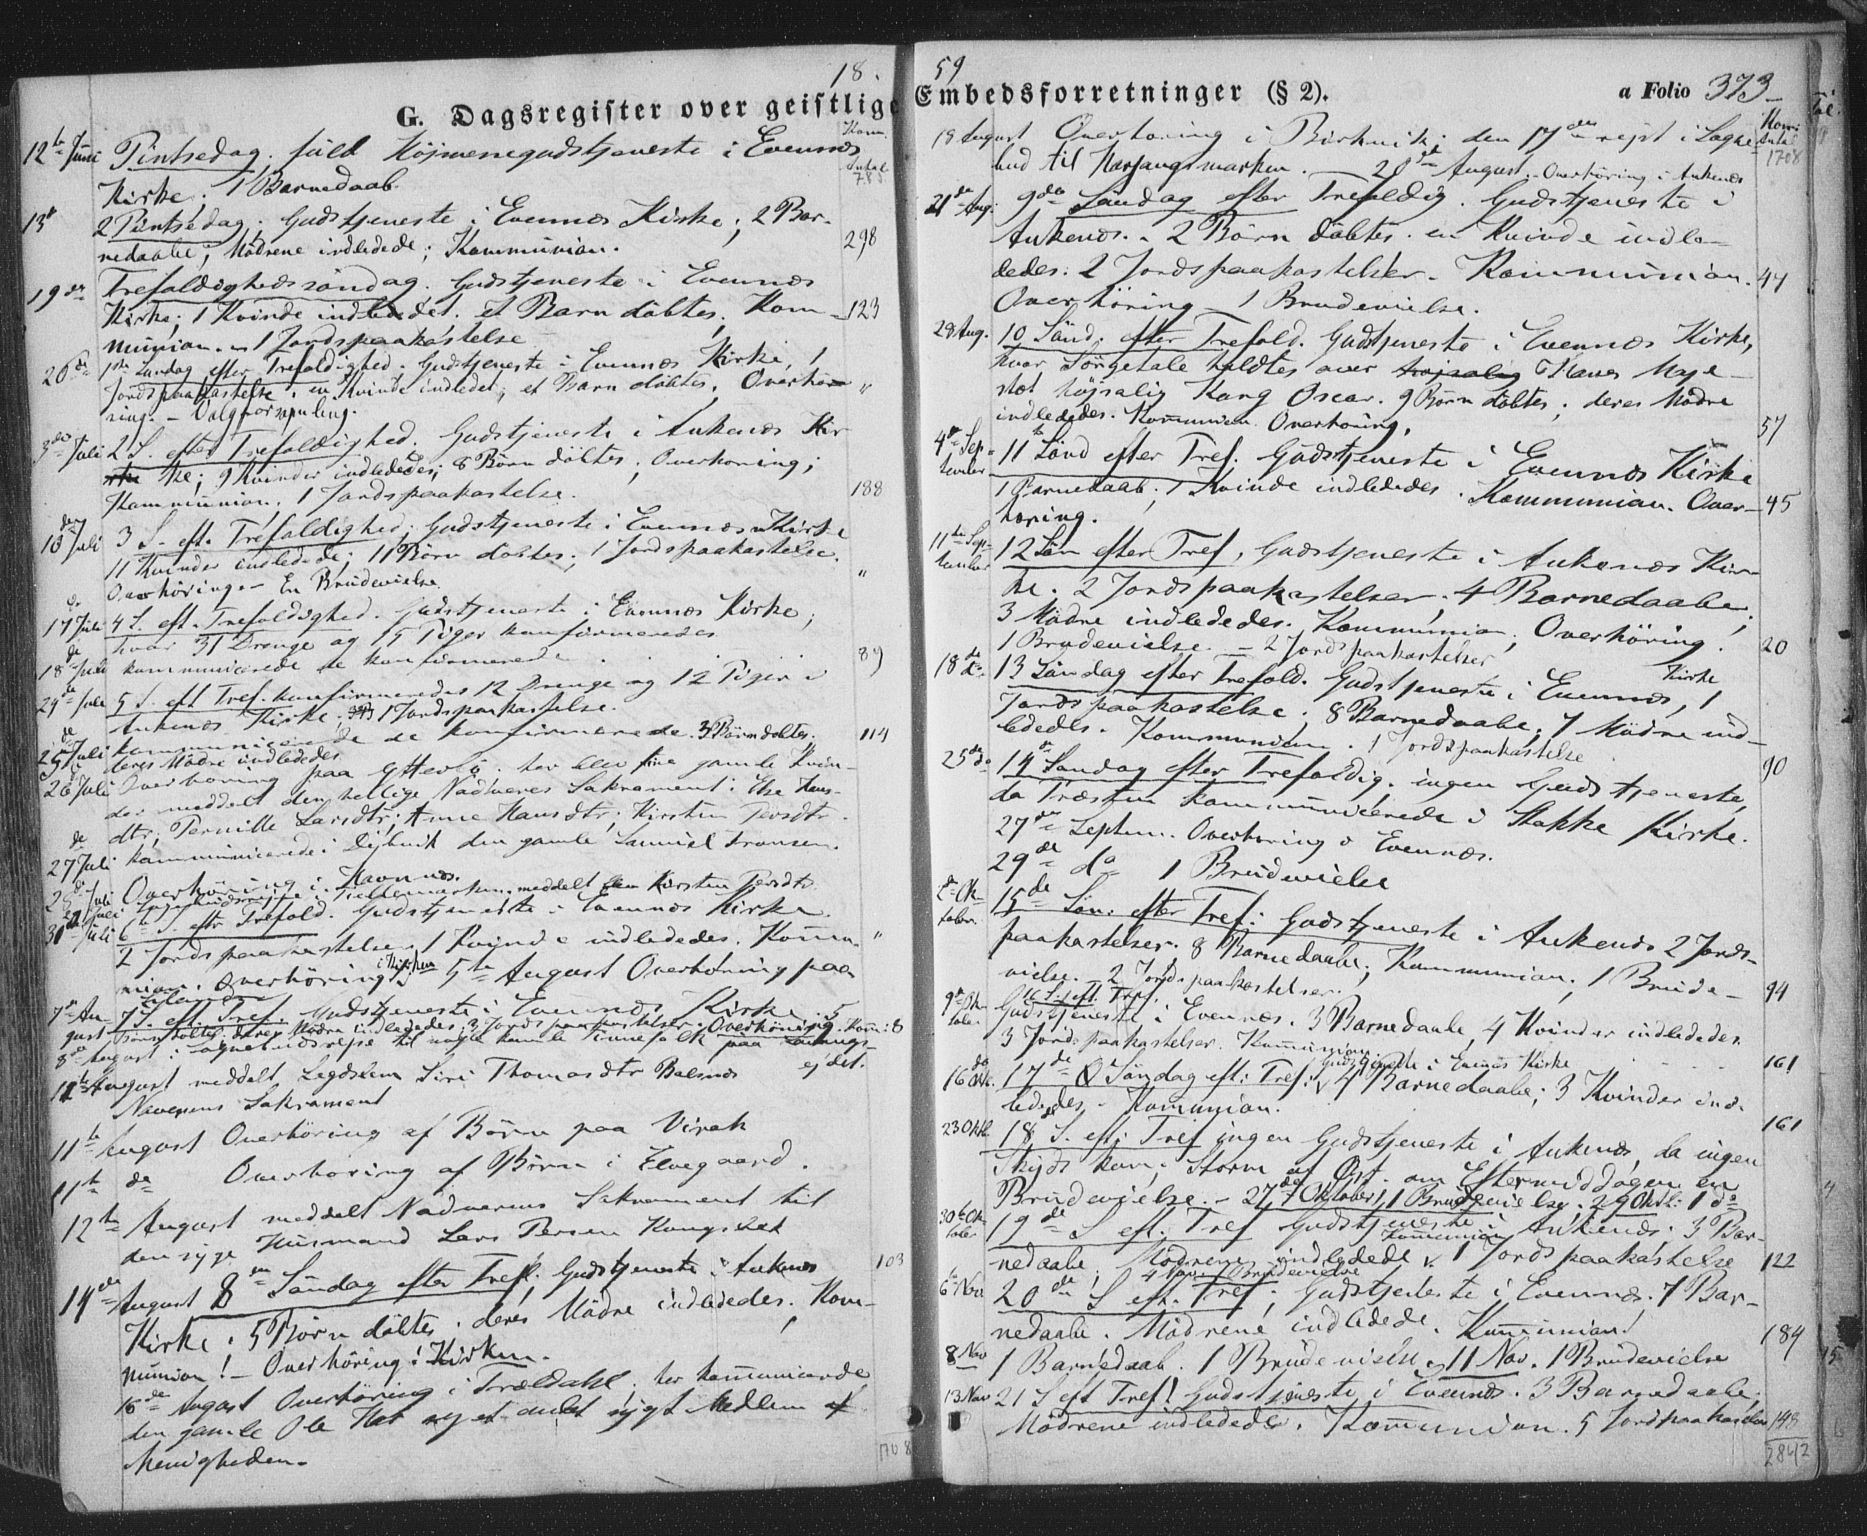 18. 59
G. Dagsregister over geistlige Embedsforretninger (§ 2). a Folio 373
Kom. Antal
785
12te Juni Pintsedag. fuld Højmessegudstjeneste i Evennes
Kirke; 1 Barnedaab.
13de 2 Pintsedag. Gudstjeneste i Evennes Kirke; 2 Bar-
nedaabe; Mødrene indledede; Kommunion. 298
19de Trefoldighedssøndag. Gudstjeneste i Evennes
Kirke; 1 Kvinde indledet. et Barn døbtes. Kom- 123
munion. 1 Jordspaakastelse
26de 1ste Søndag efter Trefoldighed. Gudstjeneste i Evennes Kirke, 1
Jordspaakastelse, en Kvinde indledet; et Barn døbtes. Overhø- "
ring. - Valgforsamling.
3die Juli 2 S. efter Trefoldighed. Gudstjeneste i Ankenes Kir
ke; 9 Kvinder indlededes; 8 Børn døbtes; Overhøring;
Kommunion. 1 Jordspaakastelse. 188
10de Juli 3 S. eft. Trefoldighed; Gudstjeneste i Evennes Kirke
11 Kvinder indledede; 11 Børn døbtes; 1 Jordspaakastelse.
Overhøring - En Brudevielse "
17de Juli 4 S. eft. Trefoldighed. Gudstjeneste i Evennes Kirke;
hvor 31 Drenge og 15 Piger konfirmeredes
18de Juli kommunicerede de konfirmerede . . . 89
24de Juli 5 S. eft Tref. konfirmeredes 12 Drenge og 12 Piger i
Ankenes Kirke. 1 Jordspaakastelse.
25de Juli kommunicerede de konfirmerede. 3 Børn døbtes. 114
deres Mødre indlededes
26de Juli Overhøring paa; her blev fire gamle Kvin-
der meddelt den hellige Nadveres Sakrament: Else Hans-
dtr; Pernille Larsdtr; Anne Hansdtr; Kirsten Persdtr.
27de Juli kommunicerede i den gamle Samuel Fransen.
28de Juli Overhøring i Havnnes.
meddelt Kirsten Persdtr.
31te Juli 6te S. eftr Trefold. Gudstjeneste i Evennes Kirke.
2 Jordspaakastelser. 1 Kvinde indlededes. Kommu- "
nion. Overhøring i Kirken 5te August Overhøring paa
7de Au- 7 S. eft Tref. Gudstjeneste i Evennes Kirke 5
gust Børn døbtes, deres Mødre indlededes; 3 Jordspaakastelser. Overhøring. Kom: 8
8de August: Sognebudsreise til nogle gamle Finnefolk paa
ejdet.
11te August meddelt Lægdslem Siri Thomasdtr Balsnes
Naverens Sakrament
11te August Overhøring af Børn paa Virak
11te do Overhøring af Børn i Elvegaard.
12te August meddelt Nadverens Sakrament til
den syge Husmand Lars Persen
14de August 8de Søndag efter Tref. Gudstjeneste i Ankenes 103
Kirke. 5 Børn døbtes. deres Mødre indlededes. Kom-
munion! - Overhøring i Kirken.
16de August Overhøring i Trældahl. her kommunicerede
den gamle Ole og et andet sygt Medlem af
Menigheden.
1708
Kom: Antal
1708
18 August Overhøring i Birkvik; den 17de rejst i Sogne-
bud til Herjangsmarken. 20de August. Overhøring i Ankenes
21de Aug. 9de Søndag efter Trefoldig. Gudstjeneste i
Ankenes. 2 Børn døbtes. en Kvinde indle-
dedes. 2 Jordspaakastelser. Kommunion. 44
Overhøring - 1 Brudevielse.
28 Aug. 10 Sønd. efter Trefold. Gudstjeneste i Evennes Kirke,
hvor Sørgetale holdtes over Hans Maje-
stæt højsalig Kong Oscar. 9 Børn døbtes; deres Mødre
indlededes. Kommunion. Overhøring. 57
4de Sep- 11te Sønd efter Tref. Gudstjeneste i Evennes Kirke
tember 1 Barnedaab; 1 Kvinde indlededes. Kommunion. Over- 45
høring.
11te Sep- 12 Søn efter Tref. Gudstjeneste i Ankenes Kir-
tember ke. 2 Jordspaakastelser. 4 Barnedaabe,
3 Mødre indlededes. Kommunion, Overhøring.
1 Brudevielse. - 2 Jordspaakastelser 20
18de do 13 Søndag efter Trefold. Gudstjeneste i Evennes Kirke, 1
Jordspaakastelse. 8 Barnedaabe; 7 Mødre ind-
lededes. Kommunion. 1 Jordspaakastelse
25de do 14de Søndag efter Trefoldig. ingen Gudstjeneste, 90
da Præsten kommunicerede i Kirke.
27de Septem. Overhøring i Evennes.
29de do 1 Brudevielse
2de Ok- 15de Søn. efter Tref: Gudstjeneste i Ankenes 2 Jords-
tober. paakastelser. 8 Barnedaabe; Kommunion; 1 Brude-
vielse. 2 Jordspaakastelser. 94
9de Ok- 16 S. eft. Tref.
tober Gudstjeneste i Evennes. 3 Barnedaabe, 4 Kvinder indlededes
3 Jordspaakastelser. Kommunion . . . 161
16de Okt. 17de Søndag eft: Tref: Gudstjeneste i Evennes Kirke 4 Barnedaabe; 3 Kvinder ind-
lededes. Kommunion. 161
23 Okt. 18de S. eft. Tref ingen Gudstjeneste i Ankenes, da ingen
Skyds kom; Storm af Øst. om Eftermiddagen en
Brudevielse. - 27de Oktober, 1 Brudevielse. 29 Okt: 1 do
30te Ok- 19de S eft. Tref Gudstjeneste i Ankenes. 3 Bar-
tober nedaabe, Mødrene indledede Kommunion 1 Jordspaakastelse 122
6te Nov 20de S eft. Tref; Gudstjeneste i Evennes. 7 Bar-
nedaabe. Mødrene indledede. Kommunion! 184
8 Nov 1 Barnedaab. 1 Brudevielse, 11 Nov. 1 Brudevielse
13 Nov 21 S eft Tref! Gudstjeneste i Evennes. 3 Barnedaabe,
Mødrene indledede. Kommunion. 5 Jordpaakastelser 148
2842